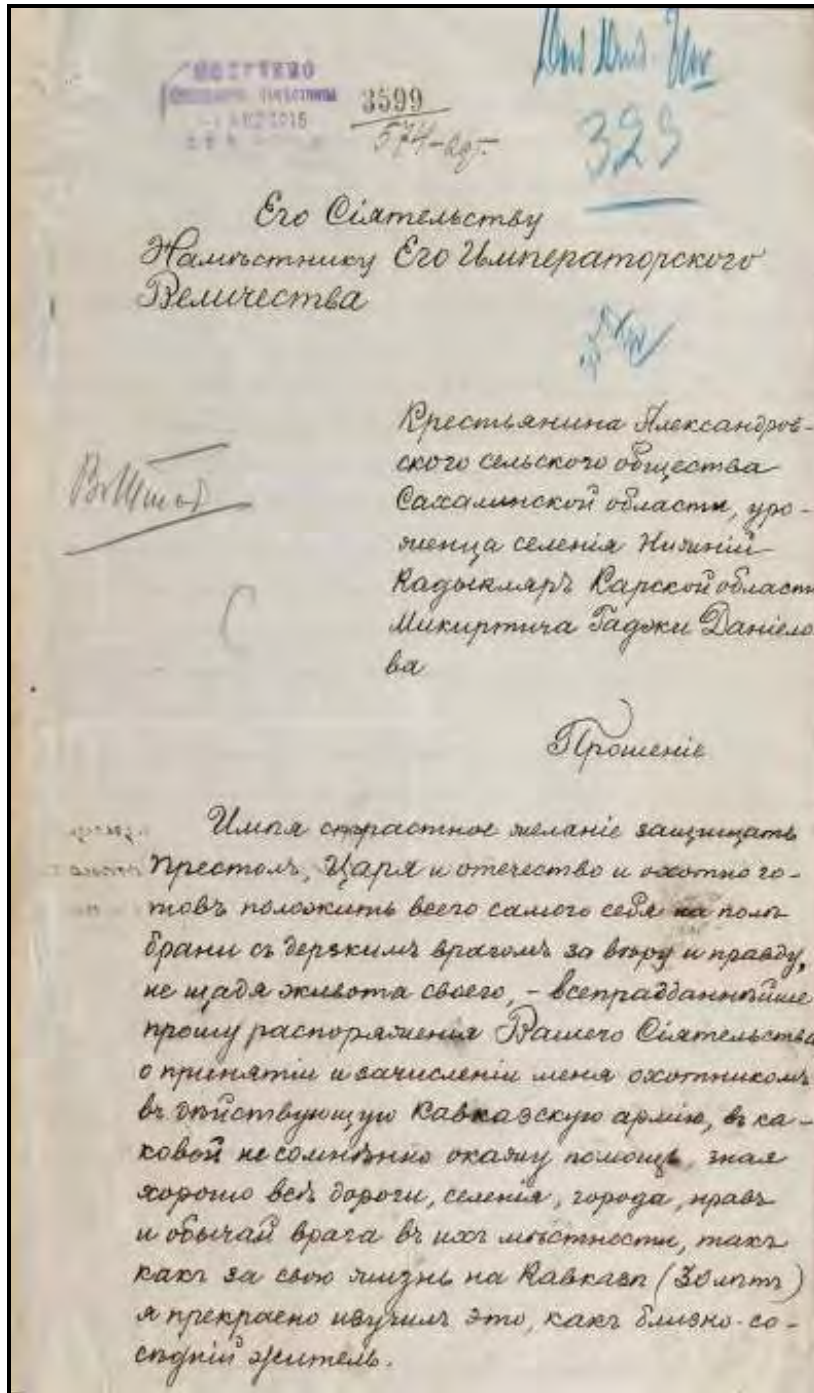 3599
574-
329
Его Сіятельству
Намѣстнику Его Императорскаго
Величества
Крестьянина Александров-
ского сельского общества
Сахалинской области, уро-
женца селенія Нижній
Кадыкляръ Карской области
Микиртича Гаджи Даніело
ва
Прошеніе
Имѣя страстное желаніе защищать
Престолъ, Царя и отечество и охотно го-
товъ положить всего самого себя на полѣ
брани съ дерзкимъ врагомъ за вѣру и правду,
не щадя живота своего, - всепрадданнѣйше
прошу распоряженія Вашего Сіятельства
о принятіи и зачисленіи меня охотникомъ
въ дѣйствующую Кавказскую армію, въ ка-
ковой несомнѣнно окажу помощь, зная
хорошо всѣ дороги, селенія, города, нравъ
и обычай врага въ ихъ мѣстности, такъ
какъ за свою жизнь на Кавказѣ (30 лѣтъ)
я прекрасно изучилъ это, какъ близко-со-
сѣдній житель.